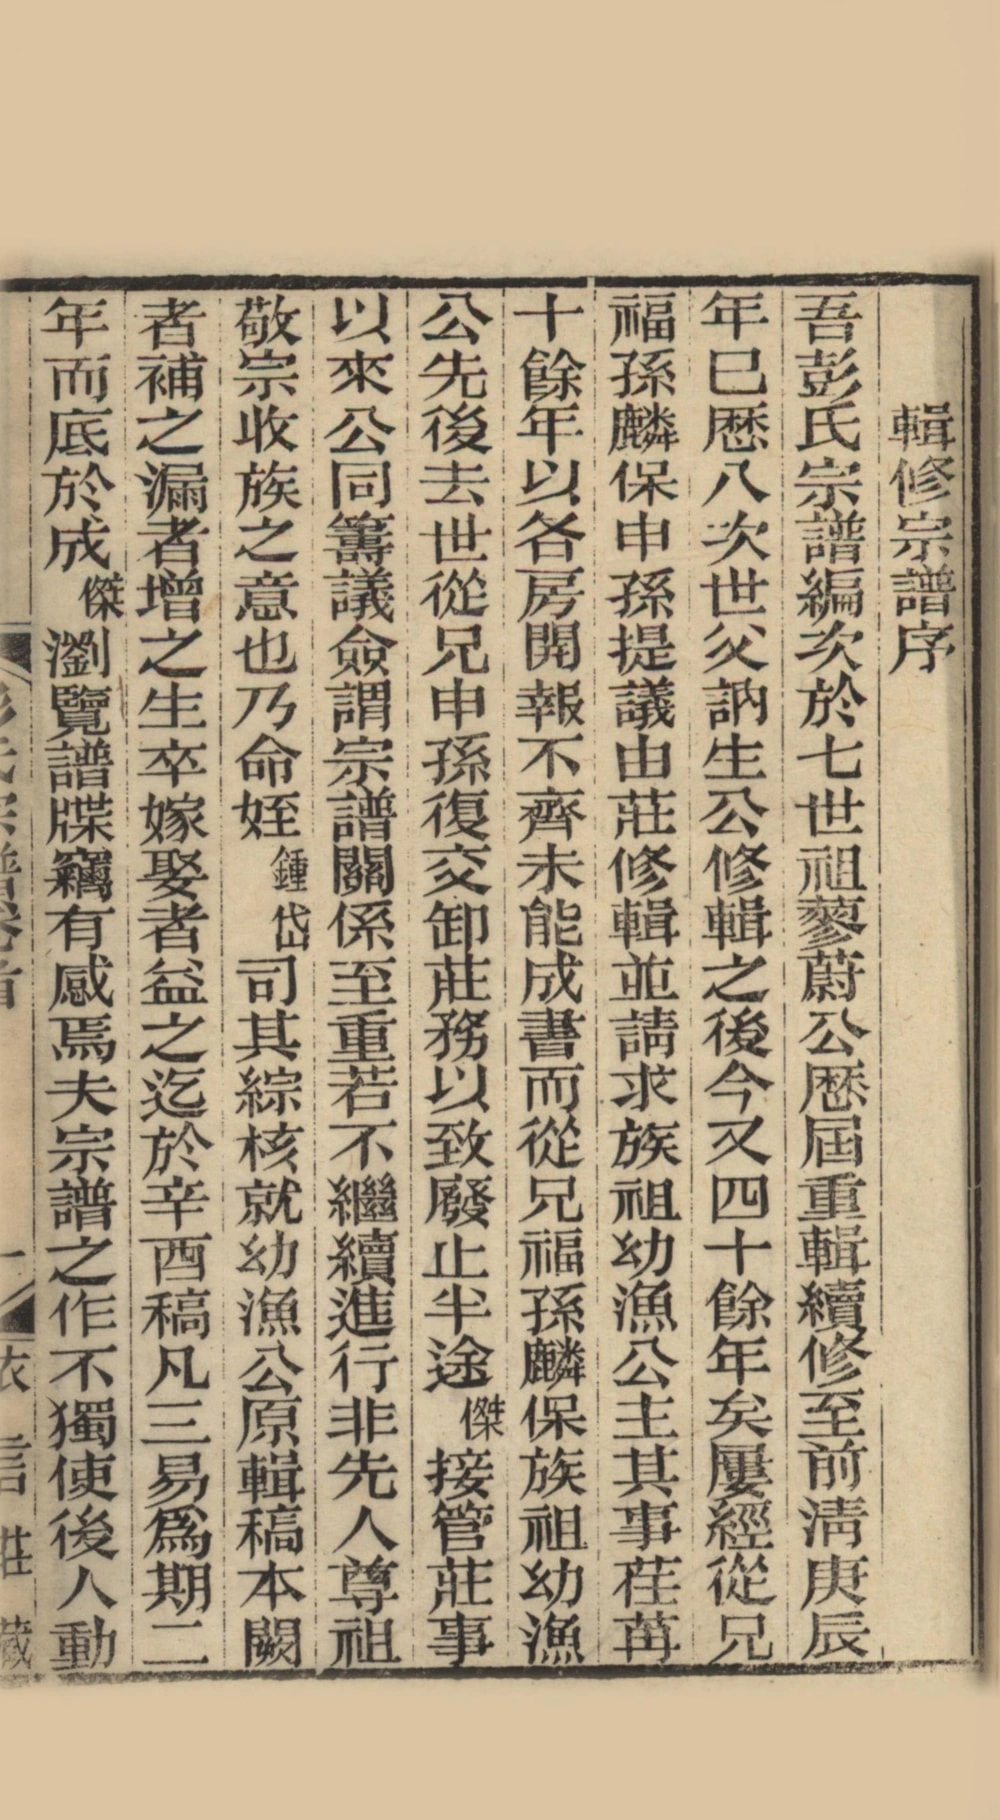 輯修宗譜序
吾彭氏宗譜編次於七世祖蓼蔚公歷屆重輯續修至前淸庚辰
年已歷八次世父訥生公修輯之後今又四十餘年矣屢經從兄
福孫麟保申孫提議由莊修輯並請求族祖幼漁公主其事荏苒
十餘年以各房開報不齊未能成書而從兄福孫麟保族祖幼漁
公先後去世從兄申孫復交卸莊務以致廢止半途傑接管莊事
以來公同籌議僉謂宗譜關係至重若不繼續進行非先人尊祖
敬宗收族之意也乃命姪鍾岱司其綜核就幼漁公原輯稿本闕
者補之漏者增之生卒嫁娶者益之迄於辛酉稿凡三易爲期二
年而底於成傑瀏覽譜牒竊有感焉夫宗譜之作不獨使後人動
彭氏宗譜卷首
一
衣言莊藏